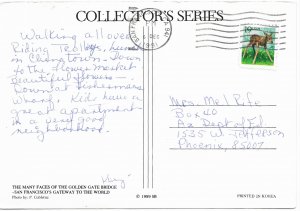 COLLECTOR'S SERIES
Walking all over.
Riding Trolleys, lunch
in Chinatown - Down
to the flower market
beautiful flowers -
Down at Fishermans
wharf, Kids have a
great apartment
in a very good
neighborhood.
DEC
1991
19
USA
Mrs. Mel Rife
Box 40
Az Dept of Ed
1535 W. Jefferson
Phoenix, 85007
THE MANY FACES OF THE GOLDEN GATE BRIDGE
-SAN FRANCISCO'S GATEWAY TO THE WORLD
Photo by: P. Gableriz
© 1989 SB
PRINTED IN KOREA